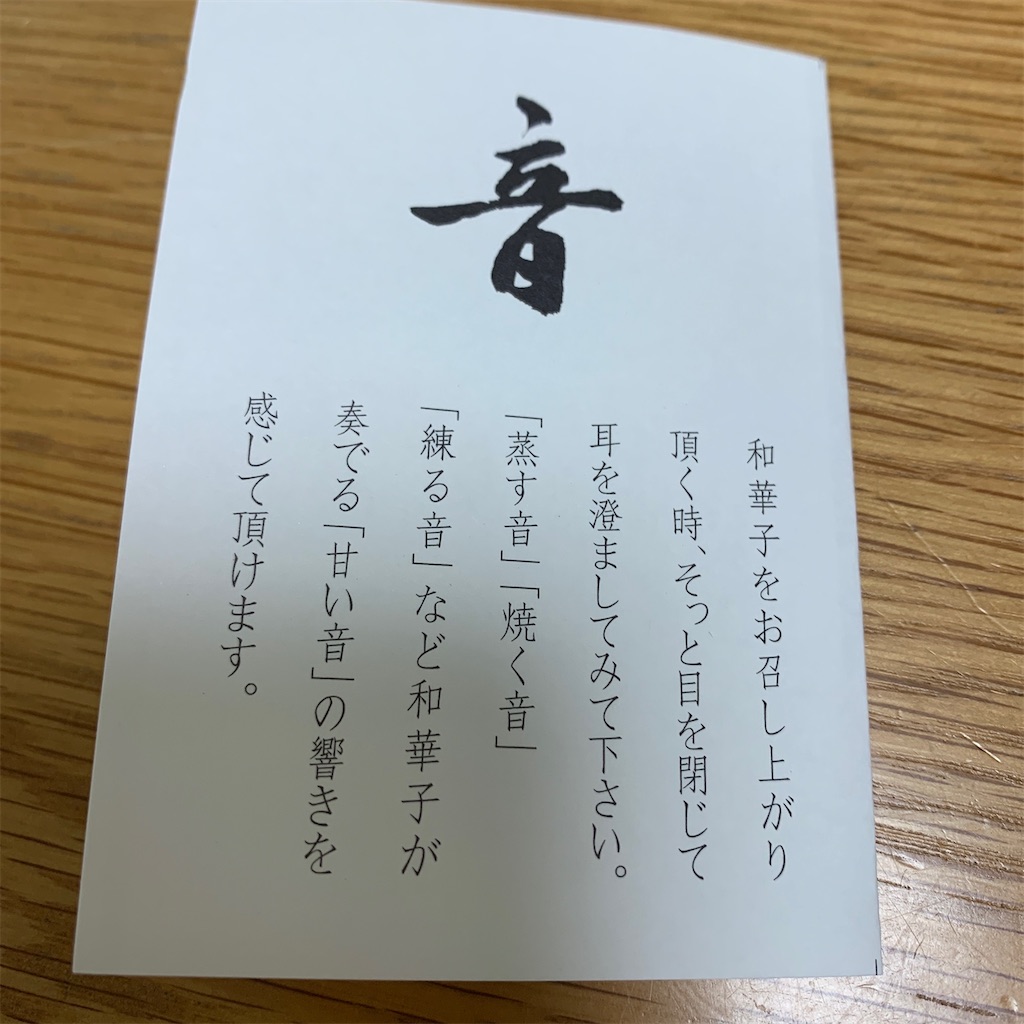 音
和華子をお召し上がり
頂く時、そっと目を閉じて
耳を澄ましてみて下さい。
「蒸す音」「焼く音」
「練る音」など和華子が
奏でる「甘い音」の響きを
感じて頂けます。